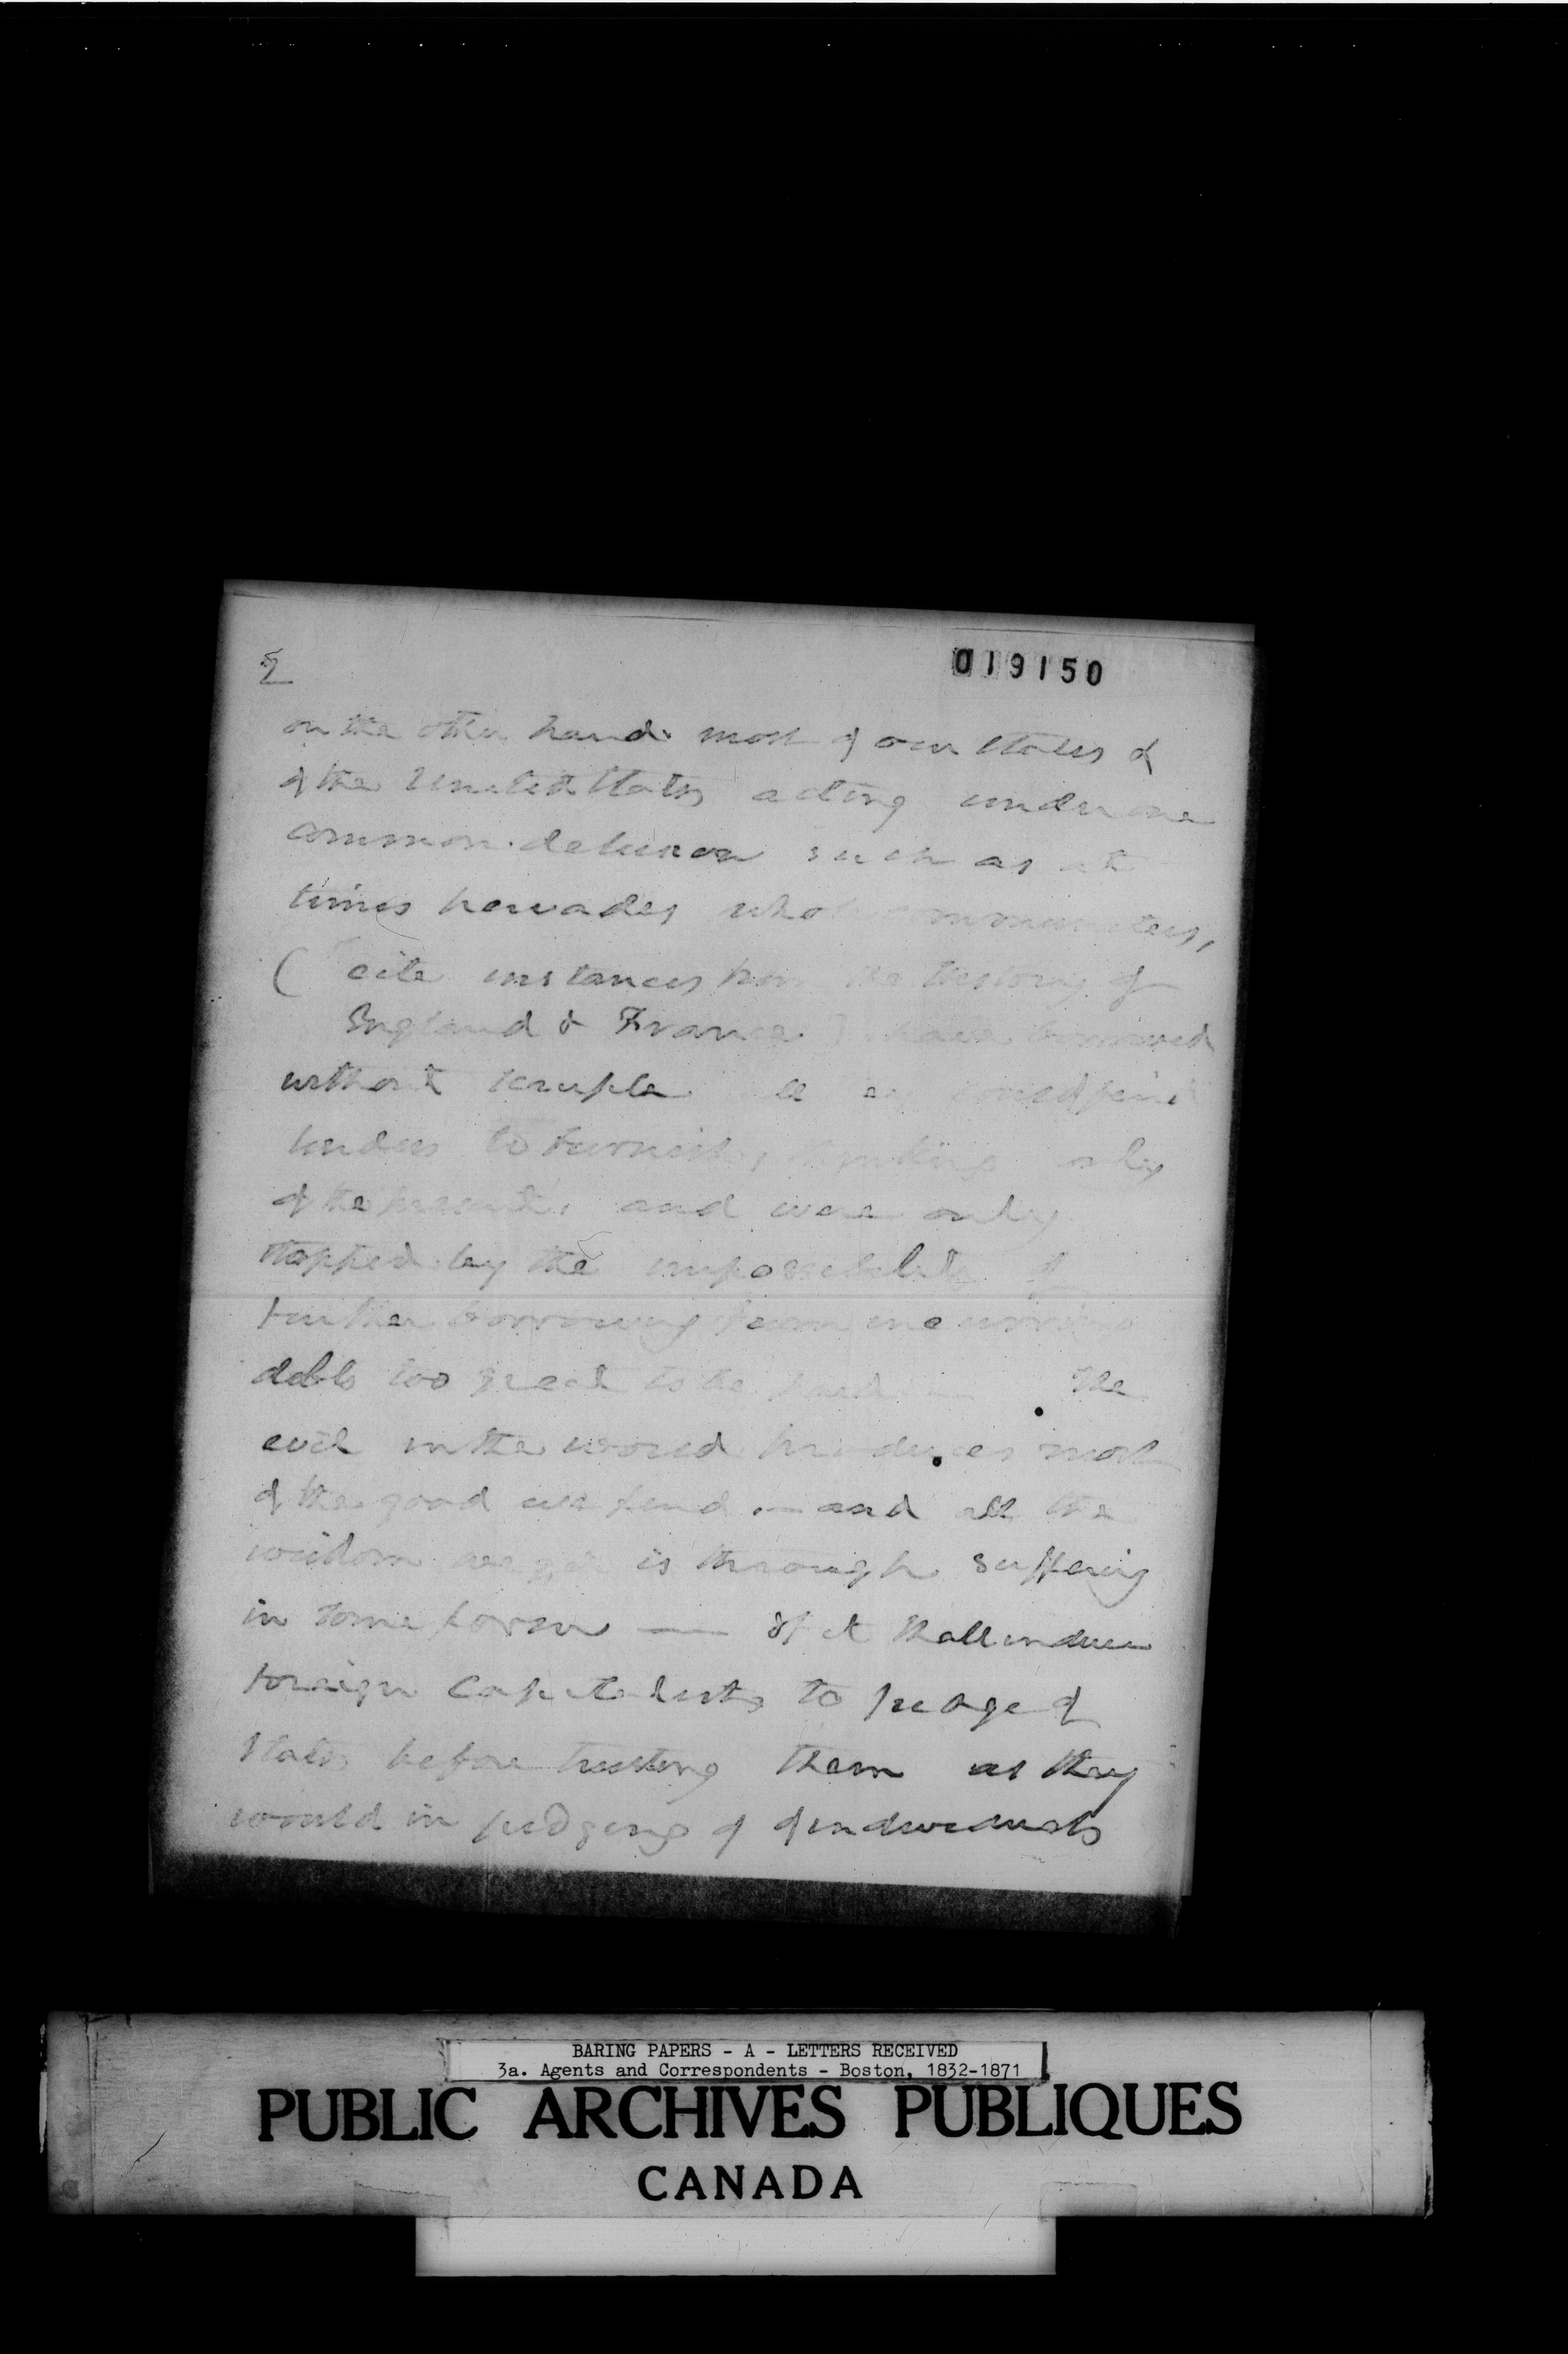 5
019150
on the other hand most of our States &
of the United States acting under one
common delusion such as at
times pervades whole communities,
( cite instances from the history of
England & France ) have borrowed
without scruple all could find
lenders to furnish, thinking only
of the present, and were only
stopped by the impossibility of
further borrowing from incurring
debts too great to be paid — The
evil in the world produces most
of the good we find — and all the
wisdom we get is through suffering
in some form — If it shall induce
foreign Capitalists to judge of
States before trusting them as they
would in judging of of individuals
BARING PAPERS - A - LETTERS RECEIVED
3a. Agents and Correspondents - Boston, 1832-1871
PUBLIC ARCHIVES PUBLIQUES
CANADA